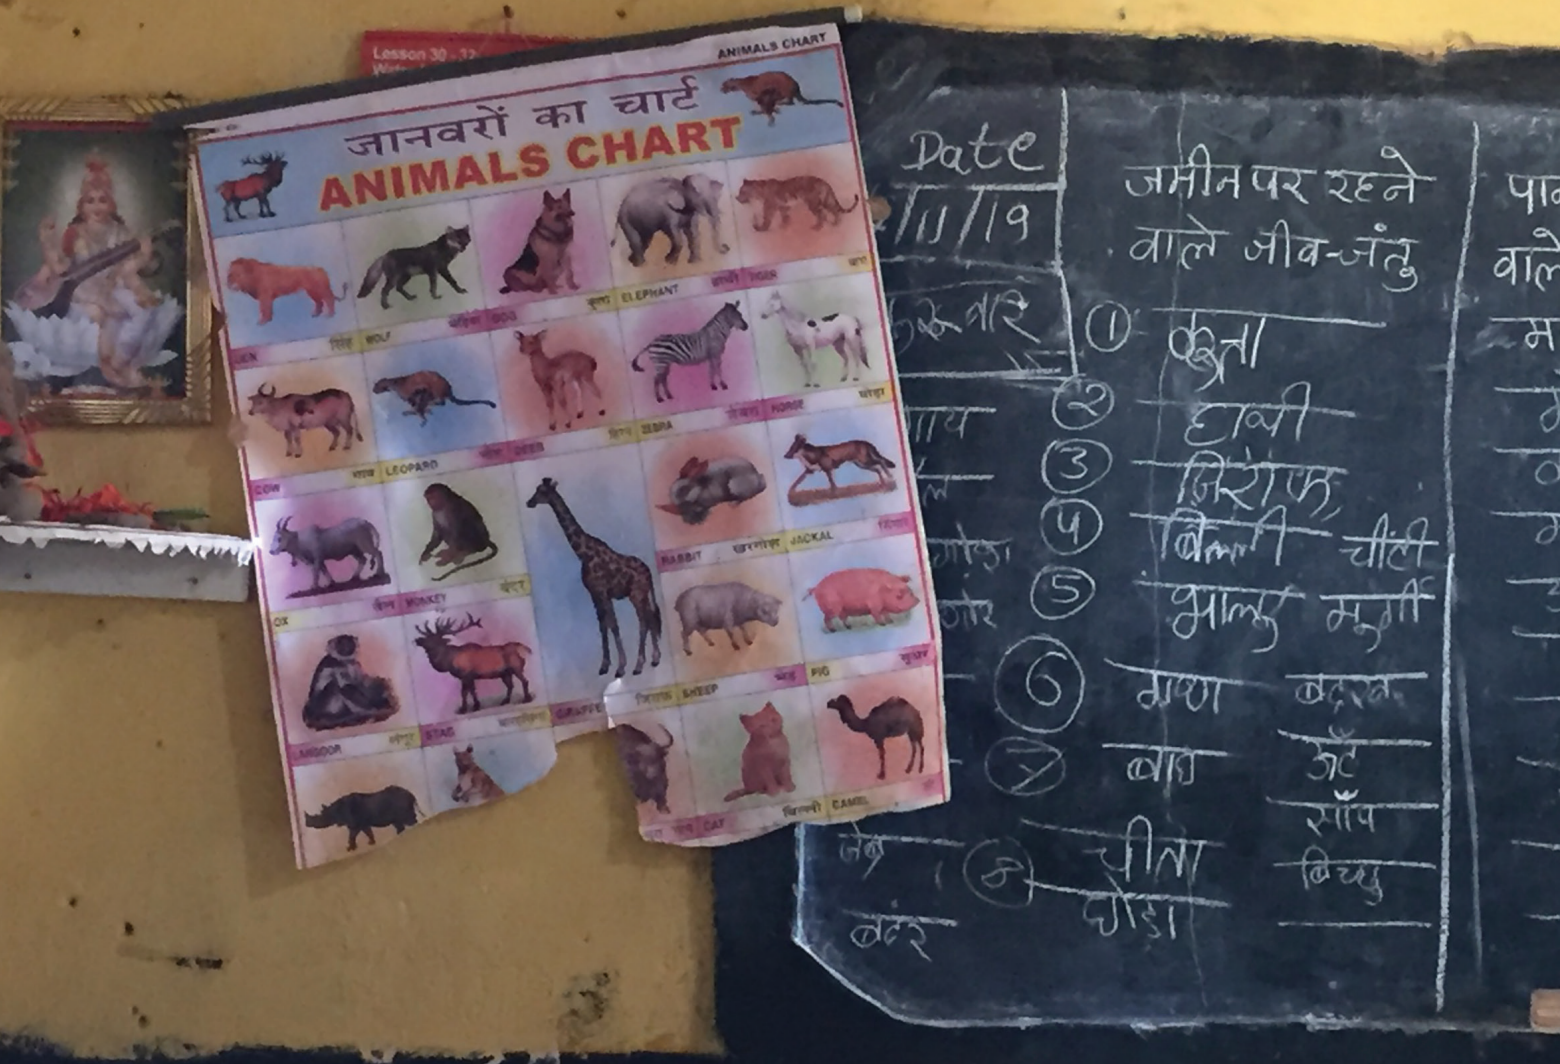 Lesson 30 - 32
ANIMALS CHART
जानवरों का चार्ट
ANIMALS CHART
सिंह WOLF भेड़िया DOG कुत्ता ELEPHANT हाथी TIGER बाघ
COW गाय LEOPARD चीता DEER हिरण ZEBRA जेबरा HORSE घोड़ा
OX बैल MONKEY बंदर
RABBIT खरगोश JACKAL सियार
लंगूर STAG बारहसिंगा GIRAFFE जिराफ SHEEP भेड़ PIG सूअर
CAT बिल्ली CAMEL
Date
/11/19
जमीन पर रहने
वाले जीव-जंतु
वाले
① कुत्ता
② हाथी
③ जिराफ
गाय
④ बिल्ली चींटी
⑤ भालु मुर्गी
⑥ गधा बदख
⑦ बाघ ऊँट
साँप
⑧ चीता बिच्छु
घोड़ा
जेब्रा
बदंर